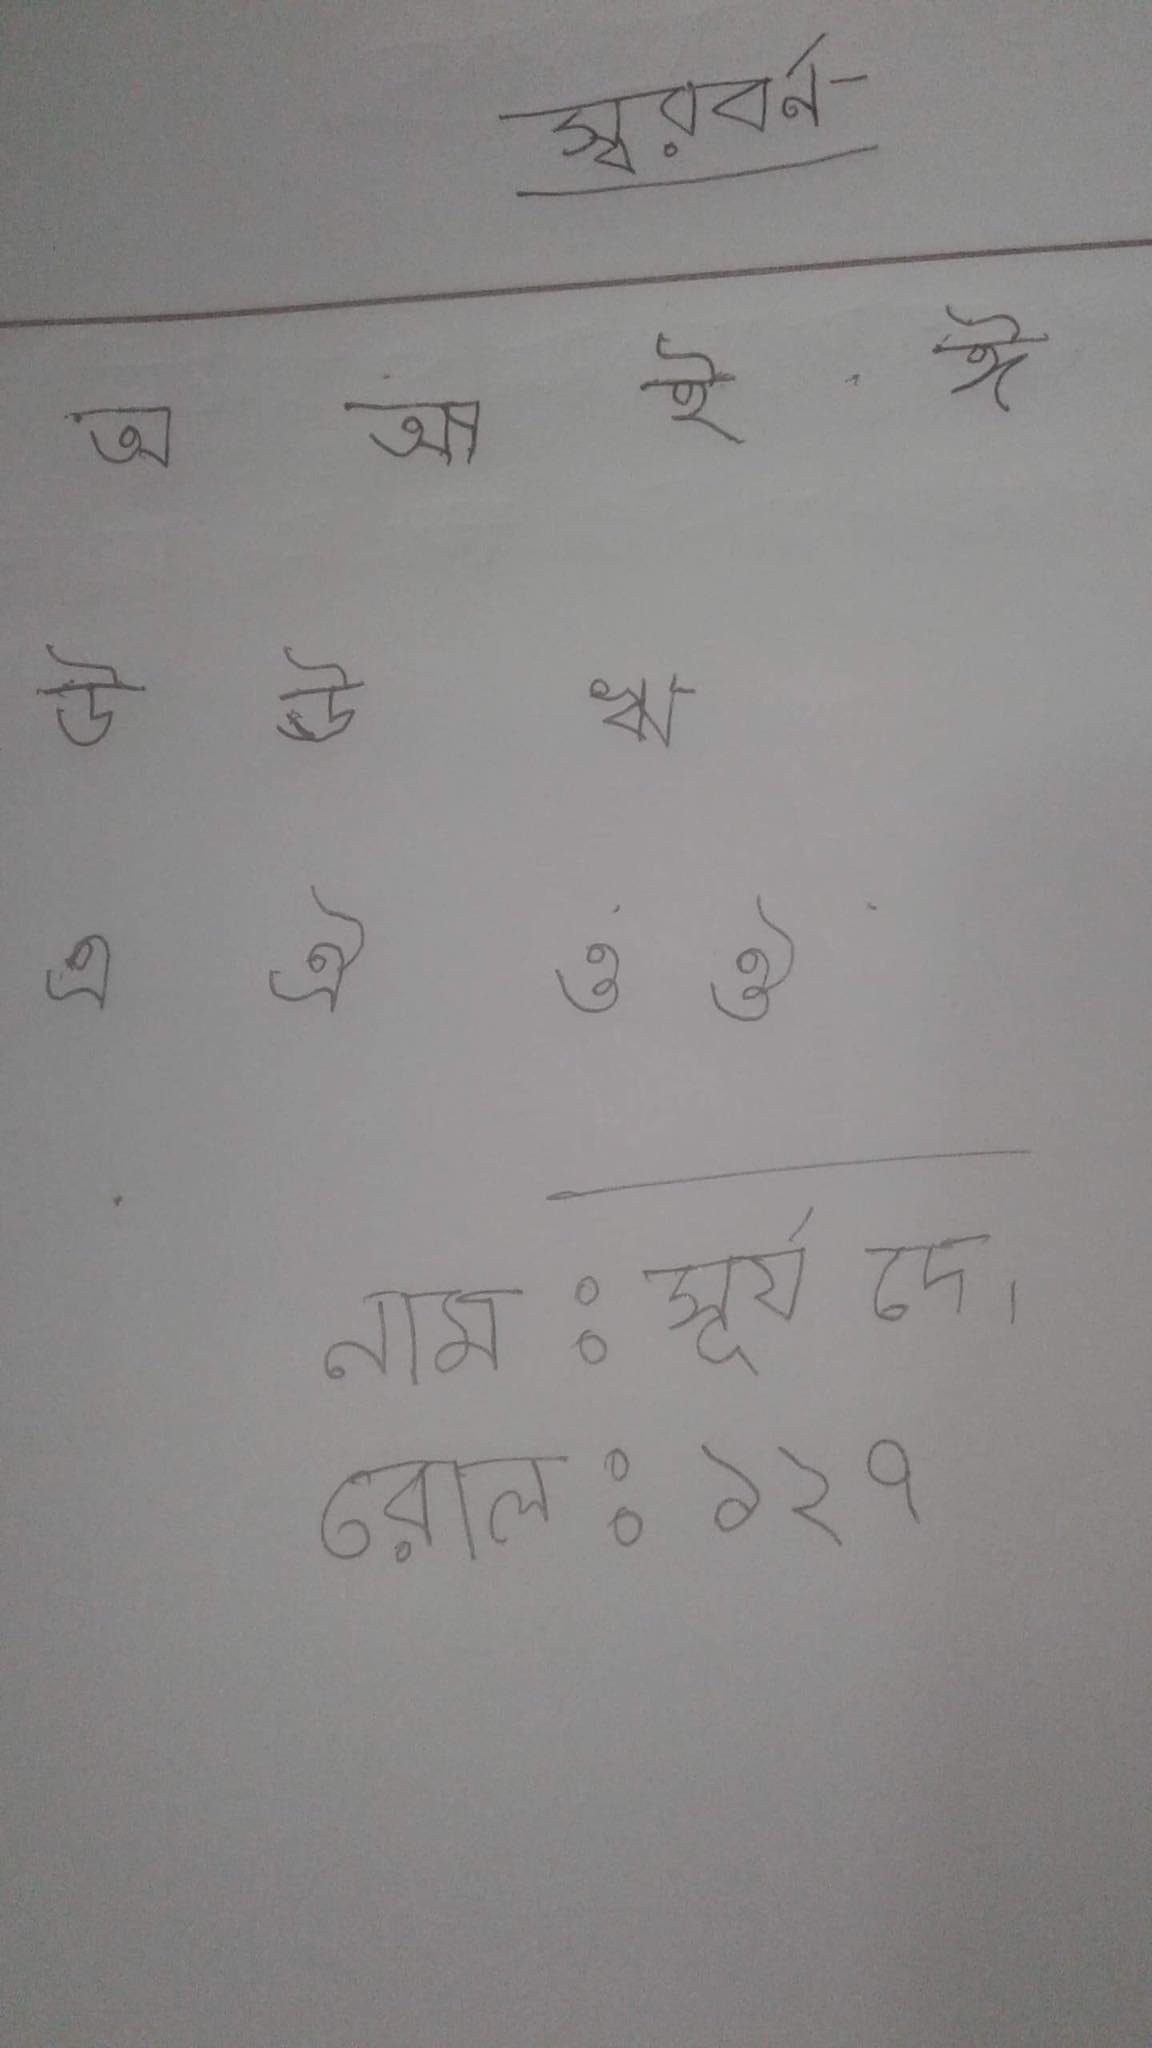 স্বরবর্ন
অ আ ই ঈ
উ ঊ ঋ
এ ঐ ও ঔ
নাম ঃ সূর্য দে।
রোল ঃ ১২৭